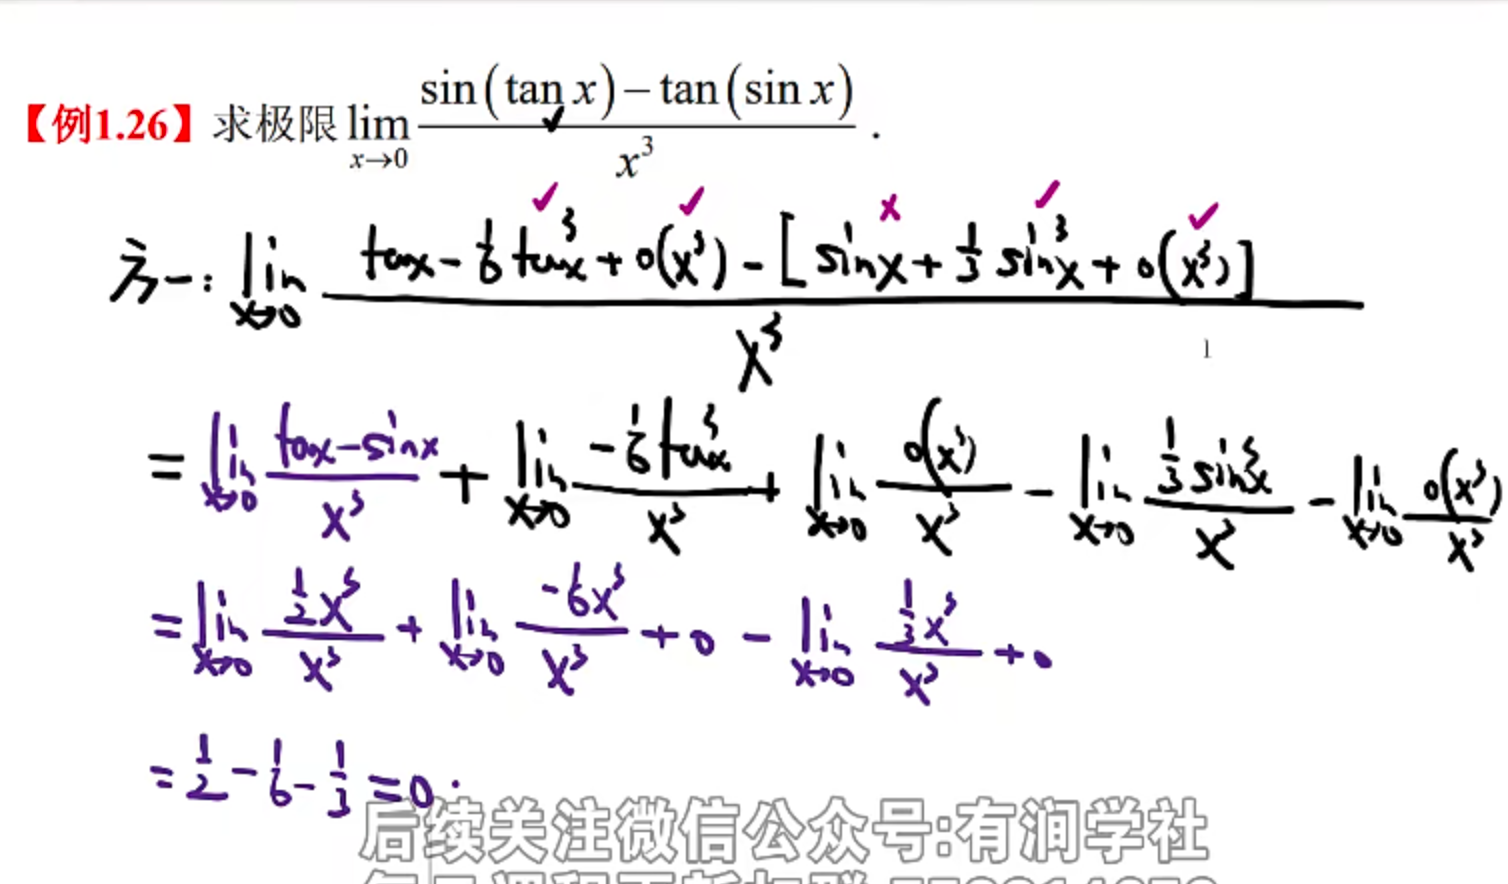 【例1.26】求极限 lim x→0 sin(tan x)−tan(sin x) / x³ .
方一: lim x→0 tanx − 1/6 tan³x + o(x³) − [sinx + 1/3 sin³x + o(x³)] / x³
= lim x→0 tanx−sinx / x³ + lim x→0 −1/6 tan³x / x³ + lim x→0 o(x³) / x³ − lim x→0 1/3 sin³x / x³ − lim x→0 o(x³) / x³
= lim x→0 1/2 x³ / x³ + lim x→0 −1/6 x³ / x³ + 0 − lim x→0 1/3 x³ / x³ + 0
= 1/2 − 1/6 − 1/3 = 0.
后续关注微信公众号:有润学社